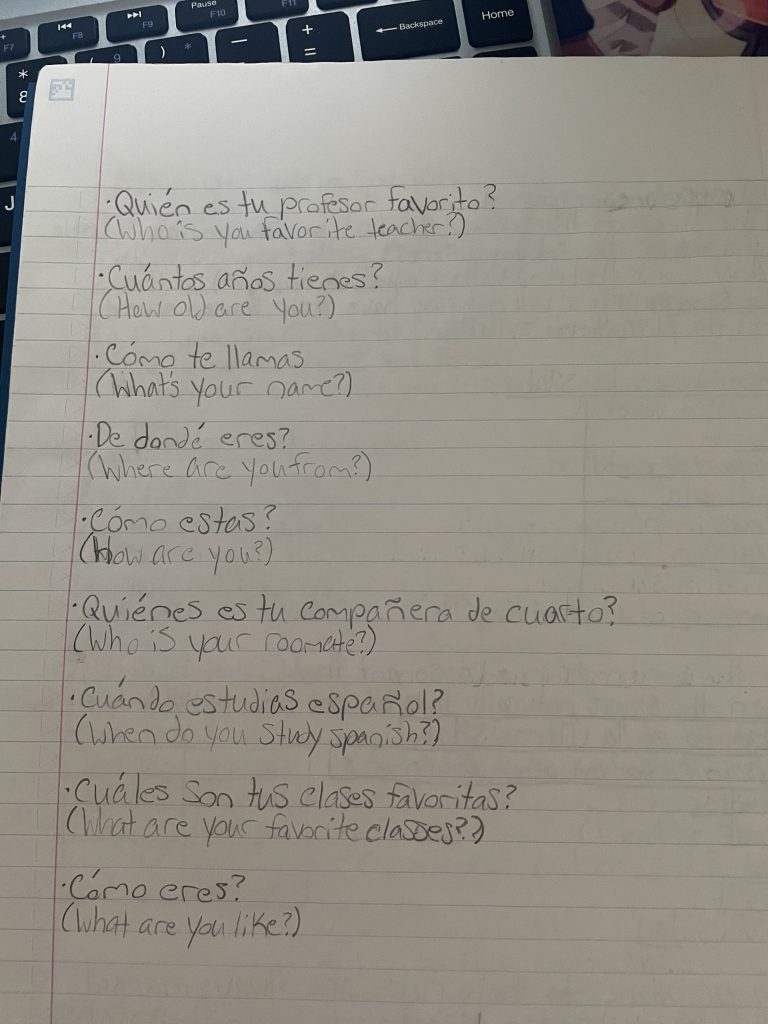 Pause
F7
F8
F9
F10
F11
Backspace
Home
*
8
(
9
)
*
—
+
=
4
J
·Quién es tu profesor favorito?
(Who is you favorite teacher?)
·Cuántos años tienes?
(How old are you?)
·Cómo te llamas
(What's your name?)
·De dondé eres?
(Where are you from?)
·Cómo estas?
(How are you?)
·Quiénes es tu compañera de cuarto?
(Who is your roomate?)
·Cuándo estudias español?
(When do you study spanish?)
·Cuáles son tus clases favoritas?
(What are your favorite classes?)
·Cómo eres?
(What are you like?)